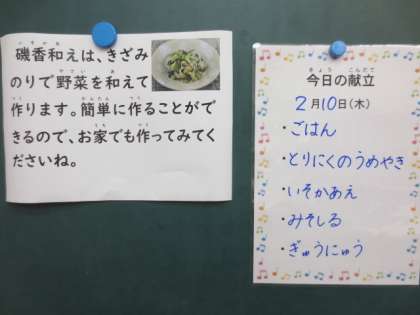 磯香和えは、きざみ
のりで野菜を和えて
作ります。簡単に作ることがで
きるので、お家でも作ってみてく
ださいね。
きょう こんだて
今日の献立
2月10日(木)
・ごはん
・とりにくのうめやき
・いそかあえ
・みそしる
・ぎゅうにゅう